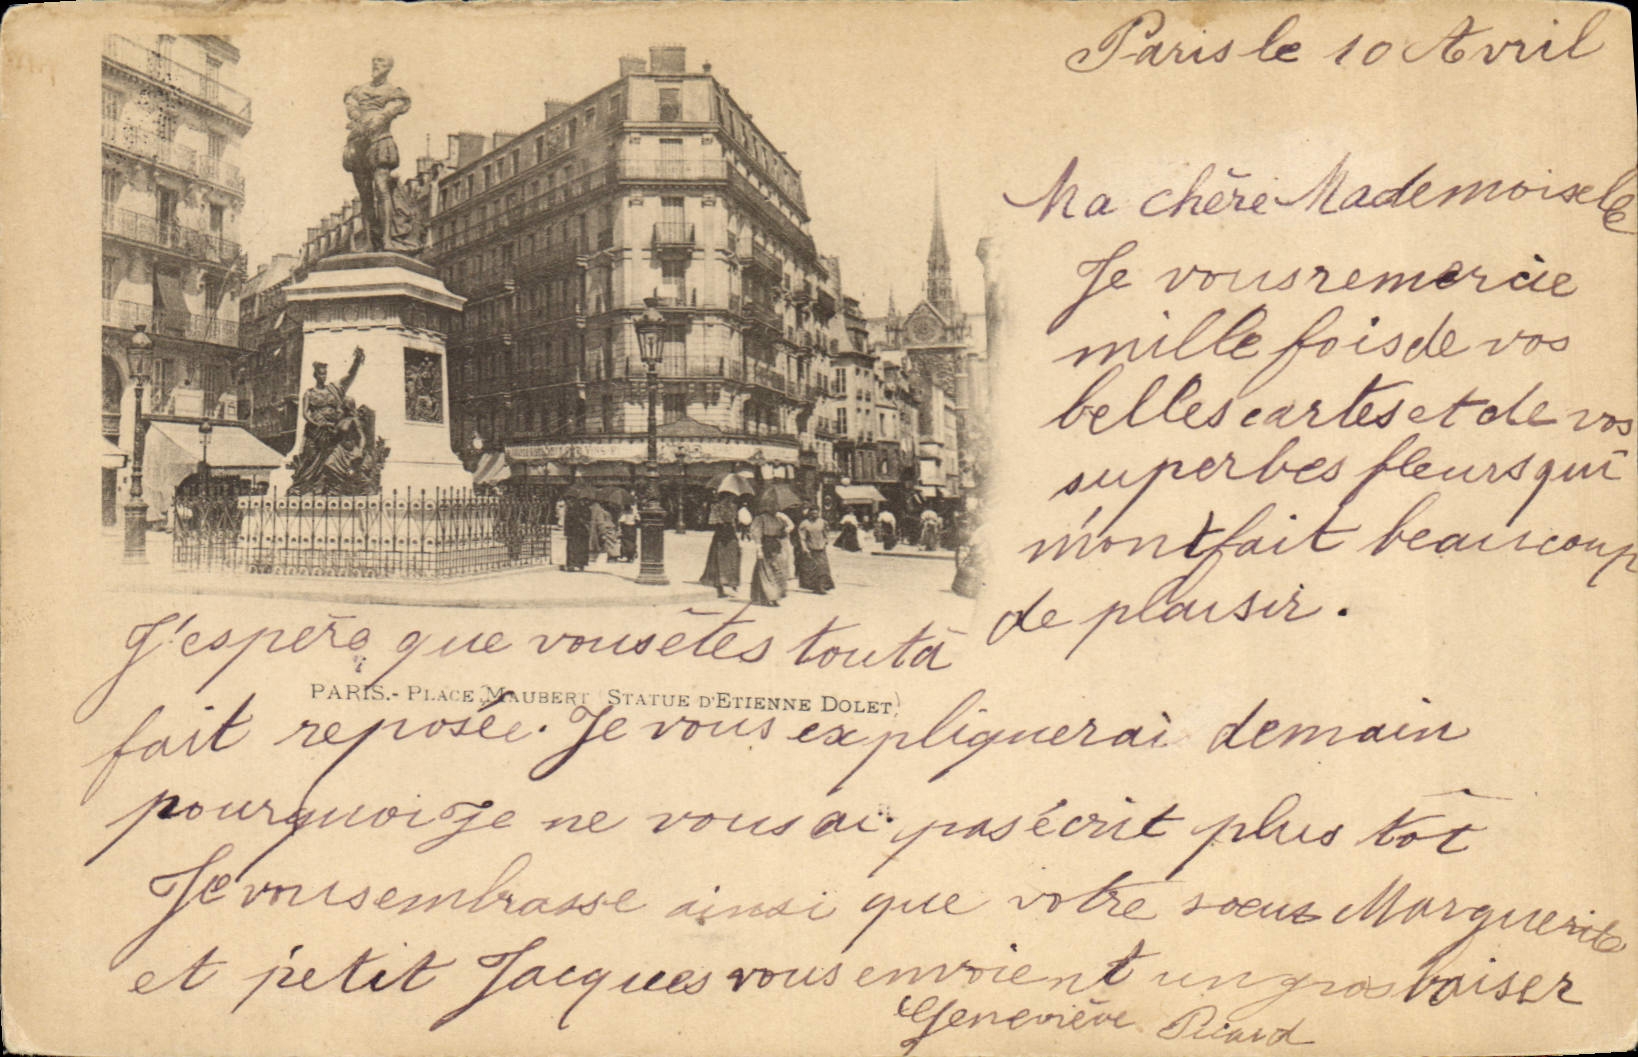 Paris le 10 Avril
Ma chère Mademoiselle
Je vous remercie
mille fois de vos
belles cartes et de vos
superbes fleurs qui
m'ont fait beaucoup
de plaisir.
J'espère que vous êtes tout à
PARIS.- PLACE MAUBERT (STATUE D'ETIENNE DOLET)
fait reposée. Je vous expliquerai demain
pourquoi Je ne vous ai pas écrit plus tôt
Je vous embrasse ainsi que votre soeur Marguerite
et petit Jacques vous envoient un gros baiser
Geneviève Picard